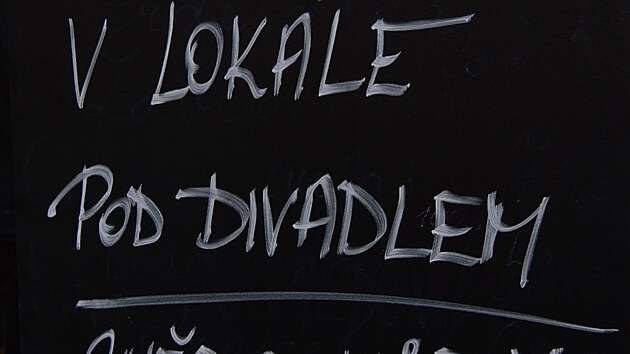 V LOKALE
POD DIVADLEM